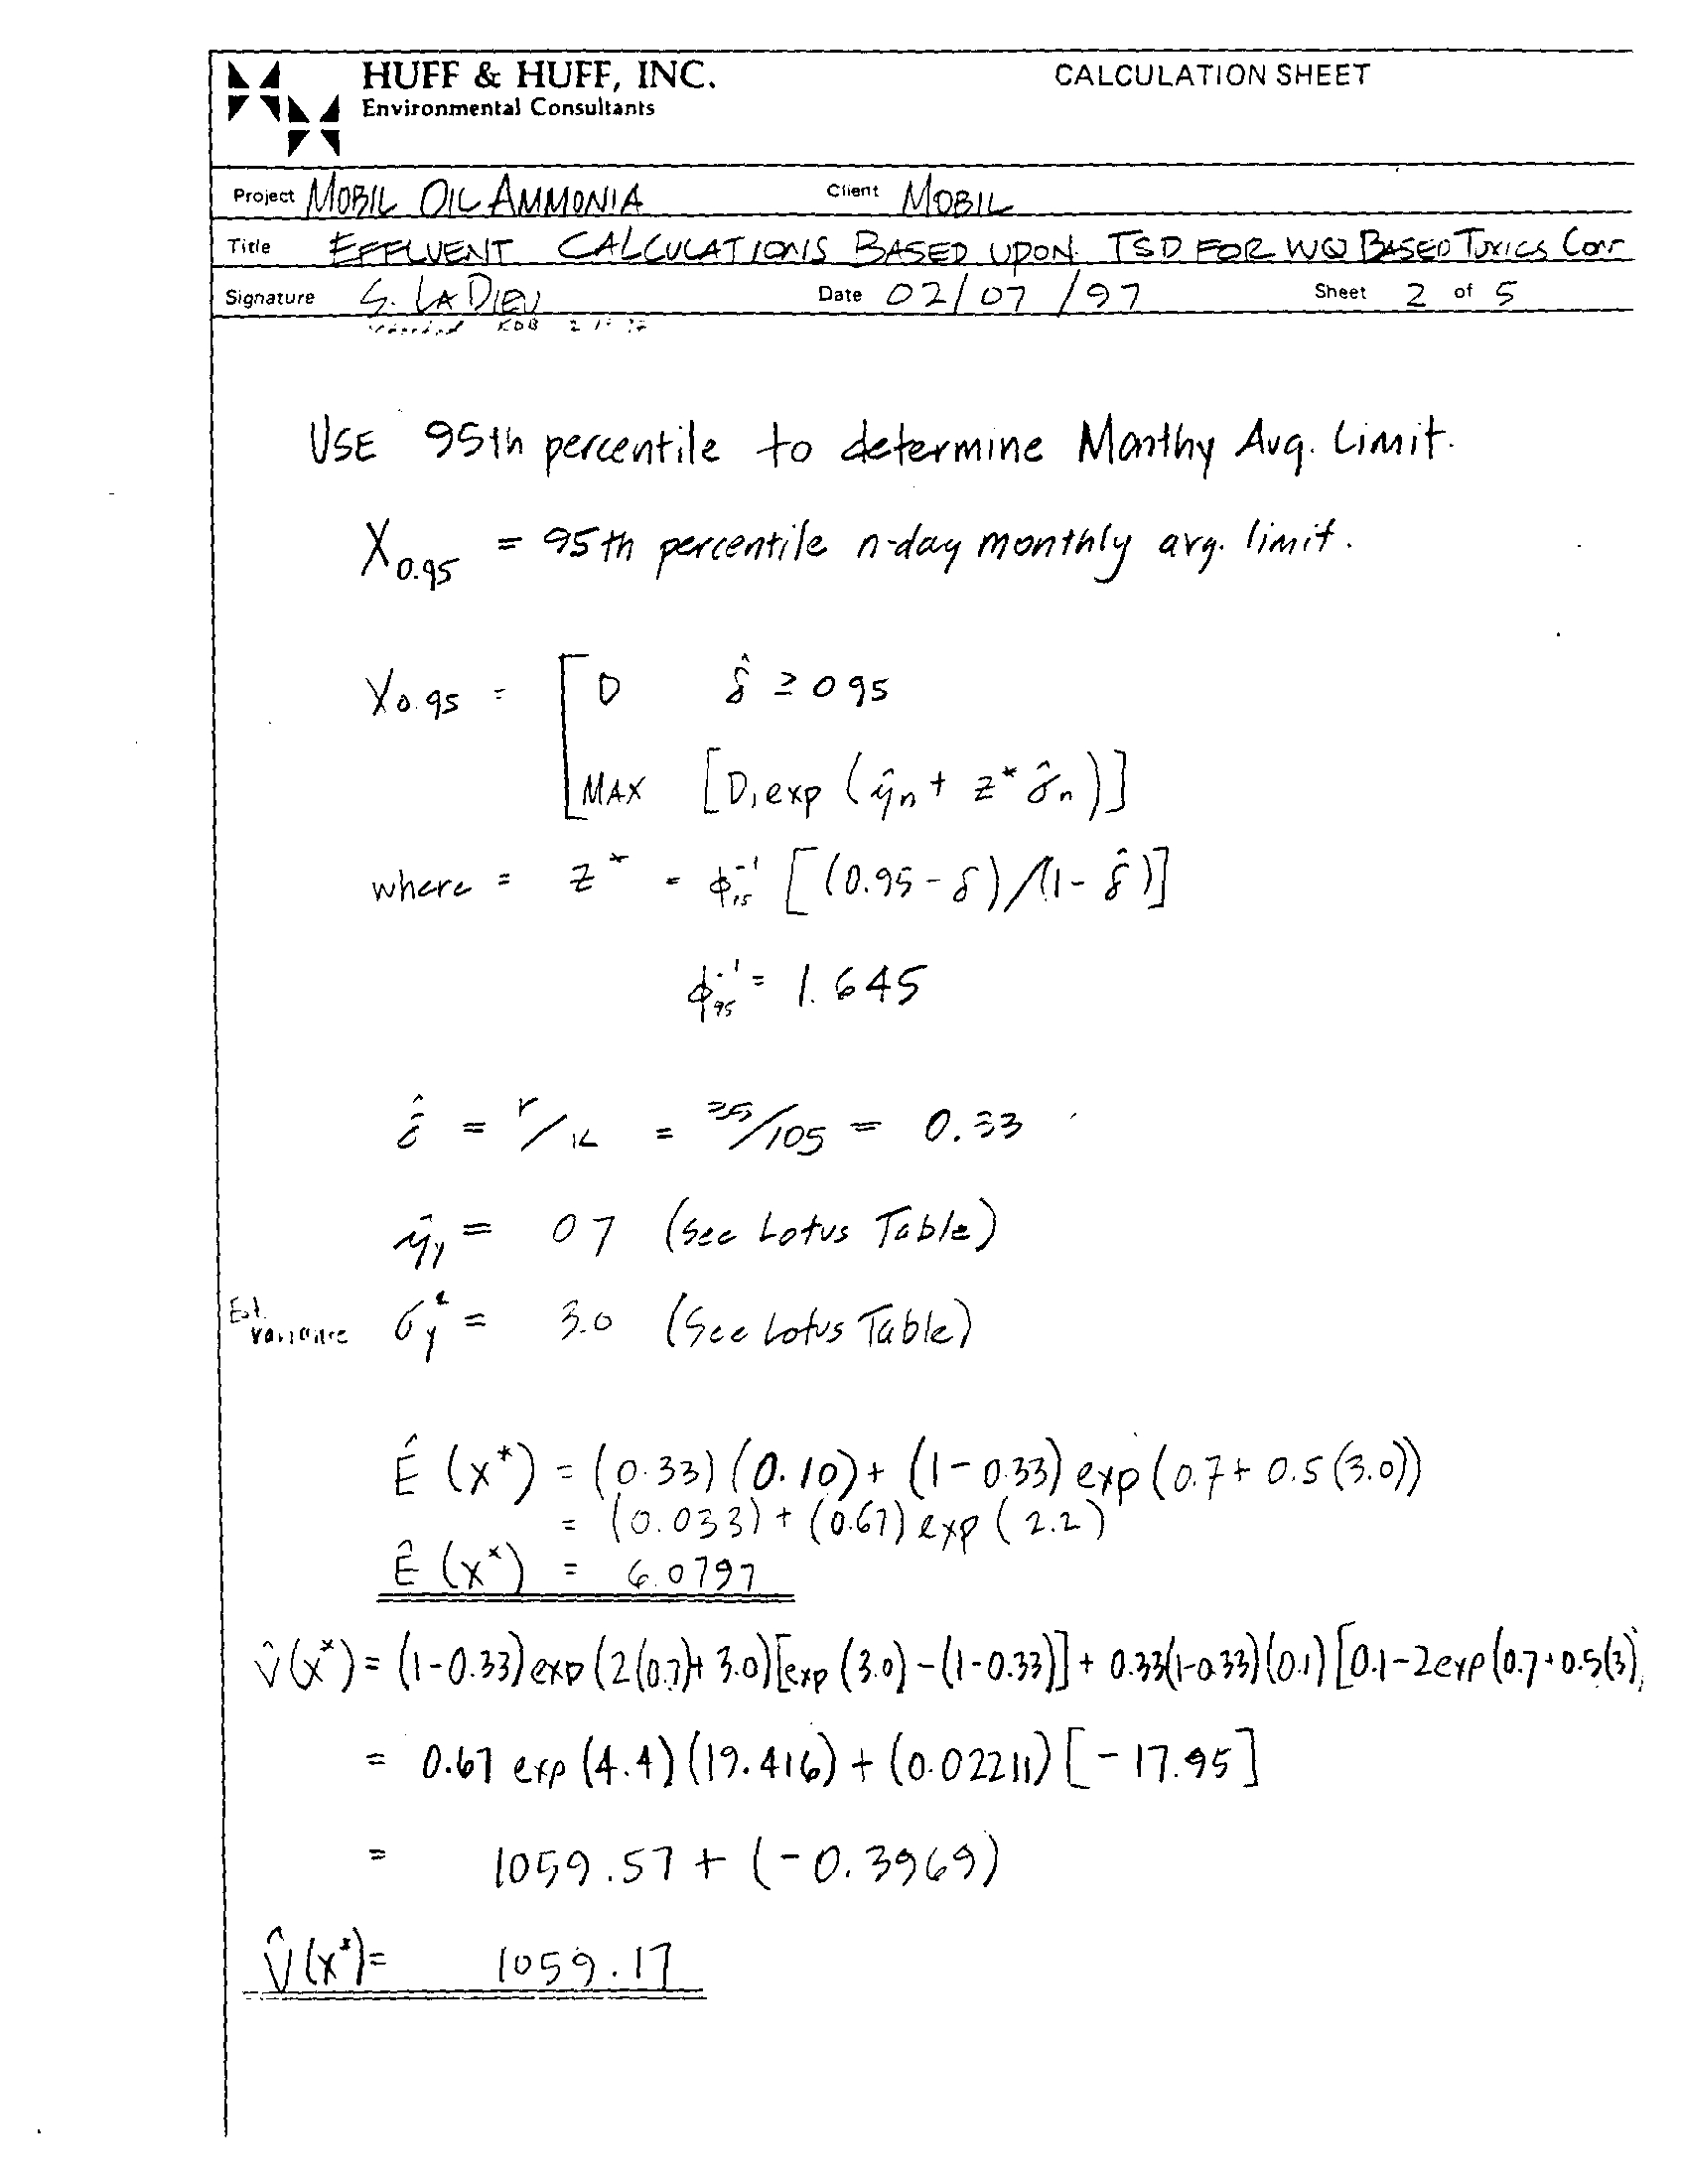 HUFF & HUFF, INC.
Environmental Consultants
CALCULATION SHEET
Project MOBIL OIL AMMONIA Client MOBIL
Title EFFLUENT CALCULATIONS BASED UPON TSD FOR WQ BASED TOXICS Con
Signature S. LADIEU Date 02/07/97 Sheet 2 of 5
KDB
USE 95th percentile to determine Monthy Avg. Limit.
X0.95 = 95th percentile n-day monthly avg. limit.
X0.95 = [ D δ̂ ≥ 0 95
MAX [D, exp (û̂n + z* σ̂n)]
where = z* = φ⁻¹.95 [(0.95 - δ)/(1 - δ̂)]
φ⁻¹.95 = 1.645
δ̂ = r/K = 35/105 = 0.33
ûy = 0 7 (See Lotus Table)
Est. variance σy² = 3.0 (See Lotus Table)
Ê (x*) = (0.33)(0.10) + (1 - 0.33) exp (0.7 + 0.5 (3.0))
= (0.033) + (0.67) exp (2.2)
Ê (x*) = 6.0797
V̂(x*) = (1-0.33) exp (2(0.7)+ 3.0)[exp (3.0) - (1-0.33)] + 0.33(1-0.33)(0.1)[0.1-2exp(0.7+0.5(3)
= 0.67 exp (4.4)(19.416) + (0.02211)[-17.95]
= 1059.57 + (-0.3969)
V̂(x*) = 1059.17